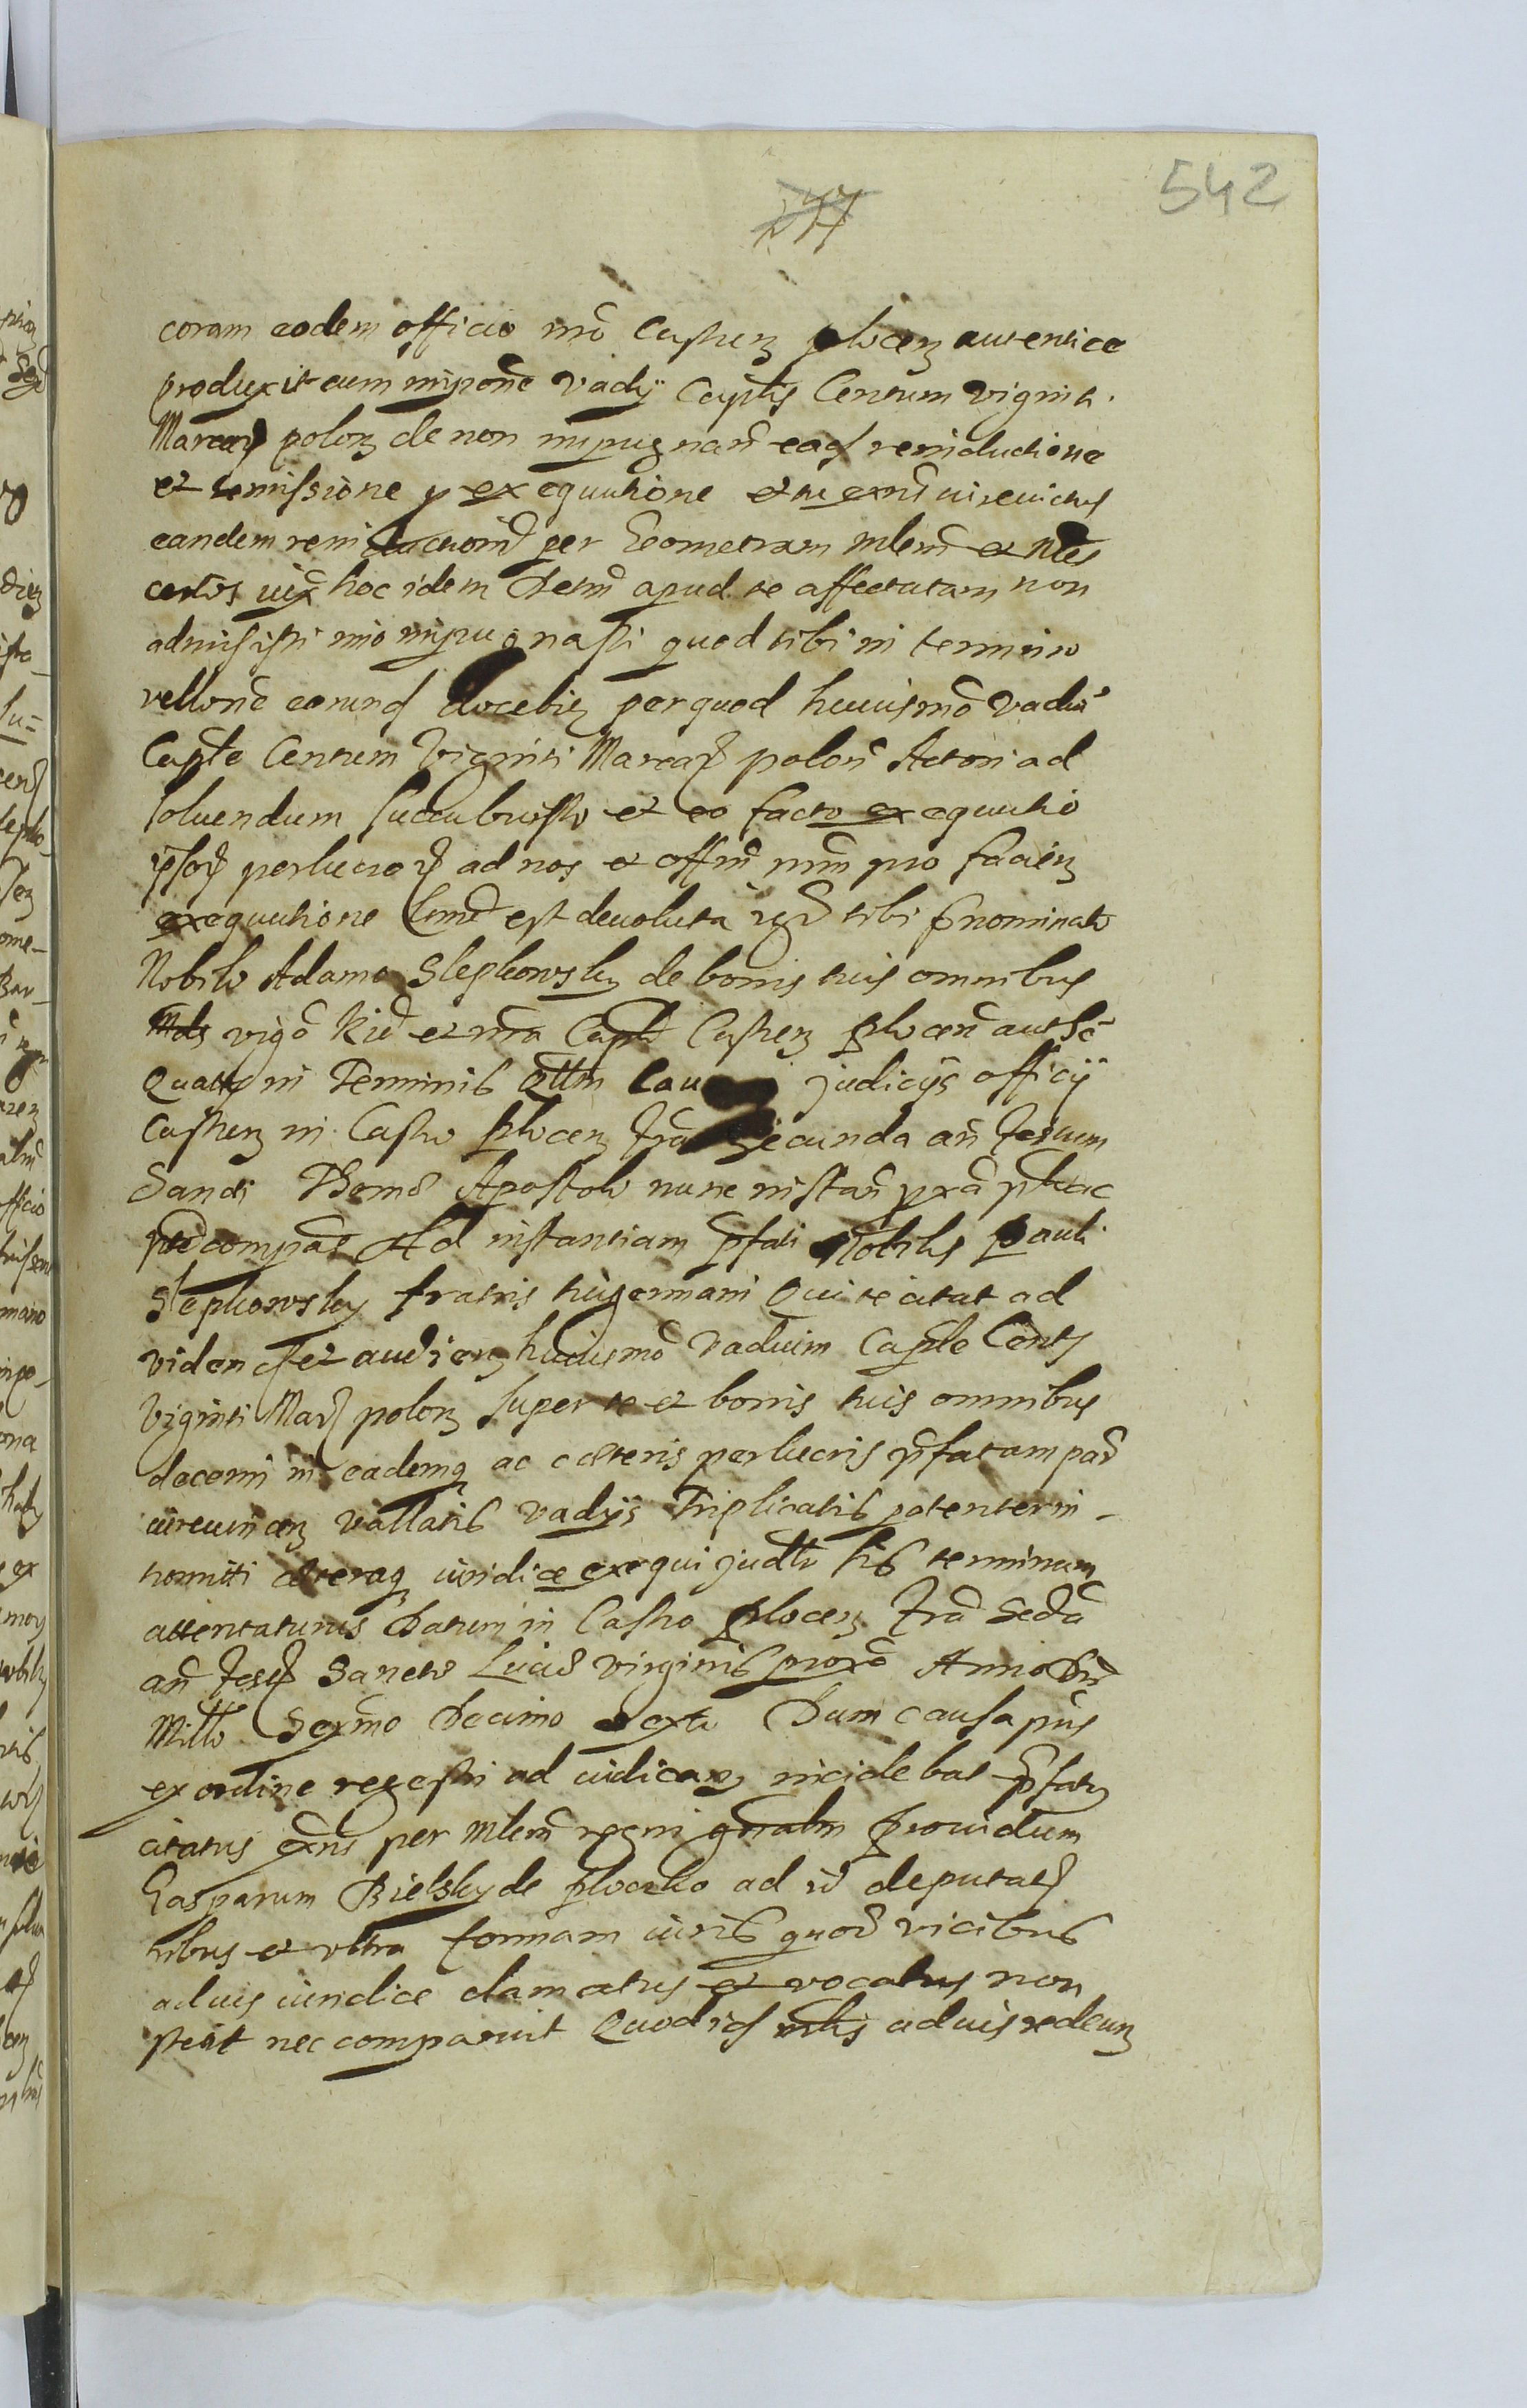 542
coram eodem officio nrō Castren plocen autentice
produxit cum inponē Vadij Caplis Centum Viginti
Marcarū polon de non inpugnan ead reinductione
et remissione p exequutione et tu exnd ius reuictus
eandem reinductioni per Geometram mlem et Nbles
certos iux hoc idem Detm apud te affectatam non
admisisti imo inpugnasti quod tibi in termino
rellone eorund docebit per quod huiusmo vadiu
Caple Centum Viginti Marcar polon Actori ad
soluendum succubuisti et eo facto exequutio
ipsor perlucror ad nos et offm nrm pro facien
exequutione est deuoluta tibi pnominato
Nobili Adamo Slepkowsky de bonis tuis omnibus
vigo et nra Capli Castren plocen autte
in Terminis judicijs officij
Castren in Castro plocen fra Secunda an festum
Sancti Thomæ Apostoli nunc instan
compas Ad instantiam pfati Nobilis Pauli
Slepkowsky fratris tui germani Qui te citat ad
viden et audien huiusmo Vadium Caple Cent
Viginti Mar polon super te et bonis tuis omnibus
decerni in eademq ac cæteris perlucris pfatam par
circumcen vallatis vadijs Triplicatis potenter in-
tromitti cæteraq iuridice exequi judtr sis terminum
attentaturus Datum in Castro plocen fra Scda
an fest Sanctæ Luciæ virginis proxo Anno Dni
Mille Sexmo Decimo sexto Dum causa pns
ex ordine regestri ad iudican incidebat pfatus
citatus exns per mlem regni gnalm Prouidum
Gasparum Bielsky de plocko ad id deputat
tribus et vltra formam iuris quod vicibus
ad uis iuridice clamatus et vocatus non
stetit nec comparuit Quod id mlis ad uis redeun